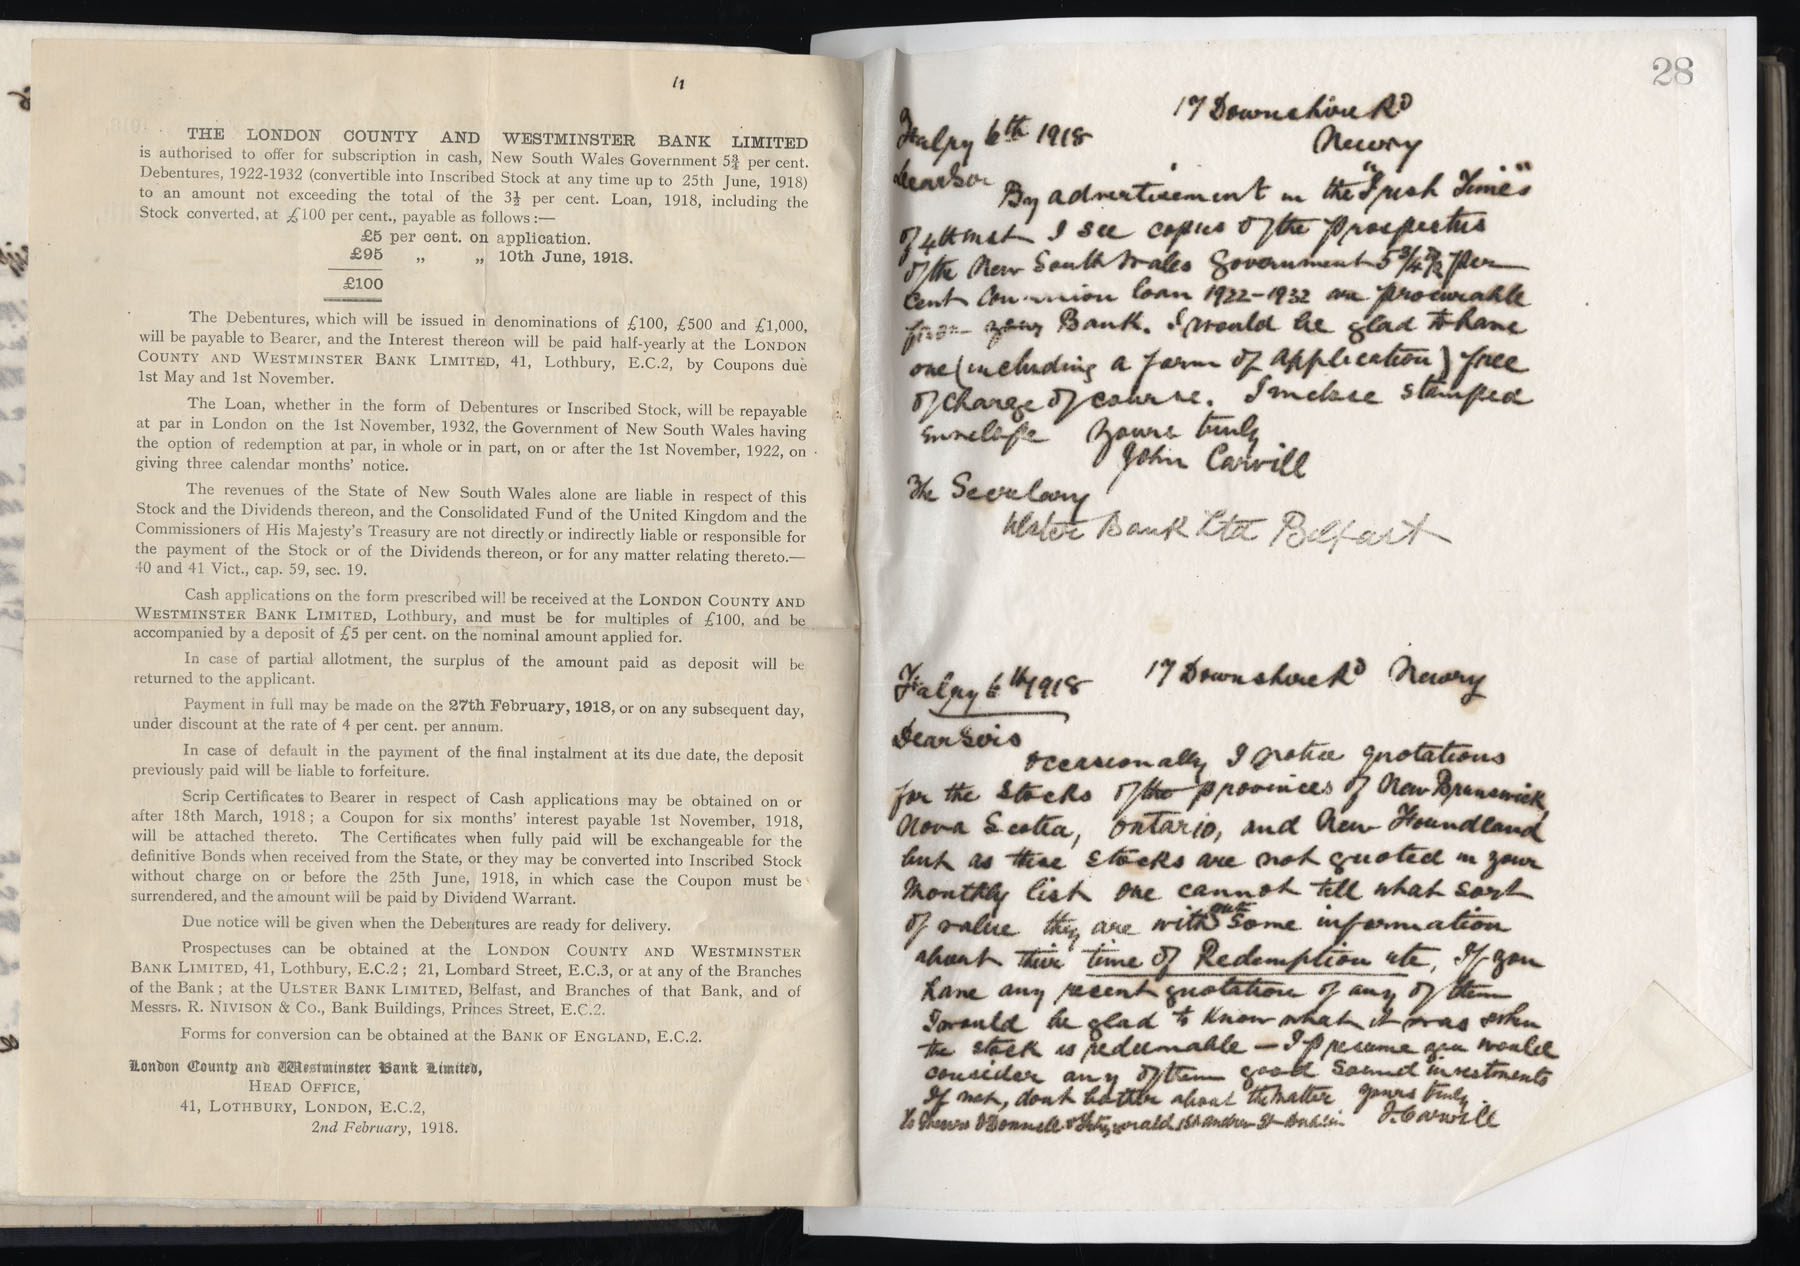 11
THE LONDON COUNTY AND WESTMINSTER BANK LIMITED
is authorised to offer for subscription in cash, New South Wales Government 5¾ per cent.
Debentures, 1922-1932 (convertible into Inscribed Stock at any time up to 25th June, 1918)
to an amount not exceeding the total of the 3½ per cent. Loan, 1918, including the
Stock converted, at £100 per cent., payable as follows:—
£5 per cent. on application.
£95 „ „ 10th June, 1918.
£100
The Debentures, which will be issued in denominations of £100, £500 and £1,000,
will be payable to Bearer, and the Interest thereon will be paid half-yearly at the LONDON
COUNTY AND WESTMINSTER BANK LIMITED, 41, Lothbury, E.C.2, by Coupons due
1st May and 1st November.
The Loan, whether in the form of Debentures or Inscribed Stock, will be repayable
at par in London on the 1st November, 1932, the Government of New South Wales having
the option of redemption at par, in whole or in part, on or after the 1st November, 1922, on
giving three calendar months' notice.
The revenues of the State of New South Wales alone are liable in respect of this
Stock and the Dividends thereon, and the Consolidated Fund of the United Kingdom and the
Commissioners of His Majesty's Treasury are not directly or indirectly liable or responsible for
the payment of the Stock or of the Dividends thereon, or for any matter relating thereto.—
40 and 41 Vict., cap. 59, sec. 19.
Cash applications on the form prescribed will be received at the LONDON COUNTY AND
WESTMINSTER BANK LIMITED, Lothbury, and must be for multiples of £100, and be
accompanied by a deposit of £5 per cent. on the nominal amount applied for.
In case of partial allotment, the surplus of the amount paid as deposit will be
returned to the applicant.
Payment in full may be made on the 27th February, 1918, or on any subsequent day,
under discount at the rate of 4 per cent. per annum.
In case of default in the payment of the final instalment at its due date, the deposit
previously paid will be liable to forfeiture.
Scrip Certificates to Bearer in respect of Cash applications may be obtained on or
after 18th March, 1918; a Coupon for six months' interest payable 1st November, 1918,
will be attached thereto. The Certificates when fully paid will be exchangeable for the
definitive Bonds when received from the State, or they may be converted into Inscribed Stock
without charge on or before the 25th June, 1918, in which case the Coupon must be
surrendered, and the amount will be paid by Dividend Warrant.
Due notice will be given when the Debentures are ready for delivery.
Prospectuses can be obtained at the LONDON COUNTY AND WESTMINSTER
BANK LIMITED, 41, Lothbury, E.C.2; 21, Lombard Street, E.C.3, or at any of the Branches
of the Bank; at the ULSTER BANK LIMITED, Belfast, and Branches of that Bank, and of
Messrs. R. NIVISON & Co., Bank Buildings, Princes Street, E.C.2.
Forms for conversion can be obtained at the BANK OF ENGLAND, E.C.2.
London County and Westminster Bank Limited,
HEAD OFFICE,
41, LOTHBURY, LONDON, E.C.2,
2nd February, 1918.
28
17 Downshire Rd
6th 1918
Newry
Dear Sir
By advertisement in the "Irish Times"
of 4th inst I see copies of the prospectus
of the New South Wales Government 5 3/4 % per
cent loan 1922-1932 are procurable
from your Bank. I would be glad to have
one (including a form of application) free
of charge of course. I inclose stamped
envelope Yours truly
John Carvill
The Secretary
Ulster Bank Ltd Belfast
6th 1918 17 Downshire Rd Newry
Dear Sirs
Occasionally I notice quotations
for the Stocks of the provinces of New Brunswick,
Nova Scotia, Ontario, and New Foundland
but as these stocks are not quoted in your
Monthly list one cannot tell what sort
of value they are without some information
about their time of Redemption etc, If you
have any recent quotation of any of them
I would be glad to know what it was when
the stock is redeemable — I presume you would
consider any of them good sound investments
If not, dont bother about the matter yours truly
To Messrs O'Donnell & Fitzgerald St Andrew St Dublin J. Carvill